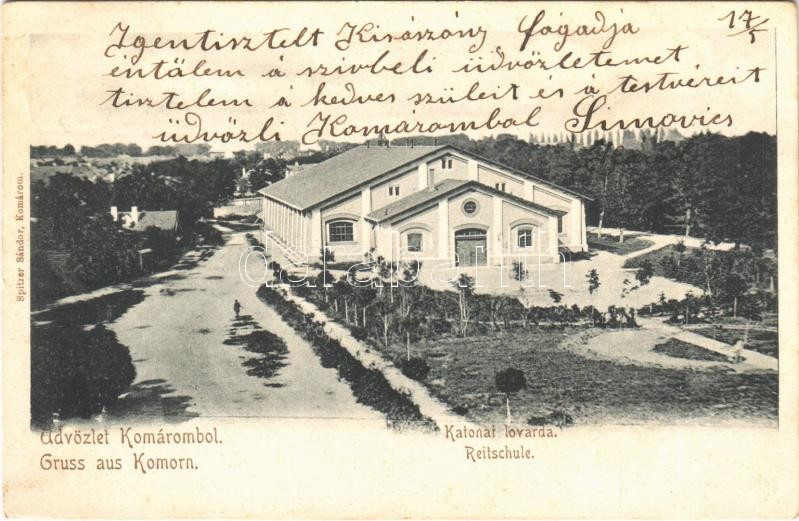 17/5
Igentisztelt Kisászony fogadja
éntálem á szivbeli üdvözletemet
tisztelem á kedves szüleit és á testvéreit
üdvözli Komárombol Simovics
Spitzer Sándor, Komárom.
darabanth
Üdvözlet Komárombol.
Gruss aus Komorn.
Katonai lovarda.
Reitschule.